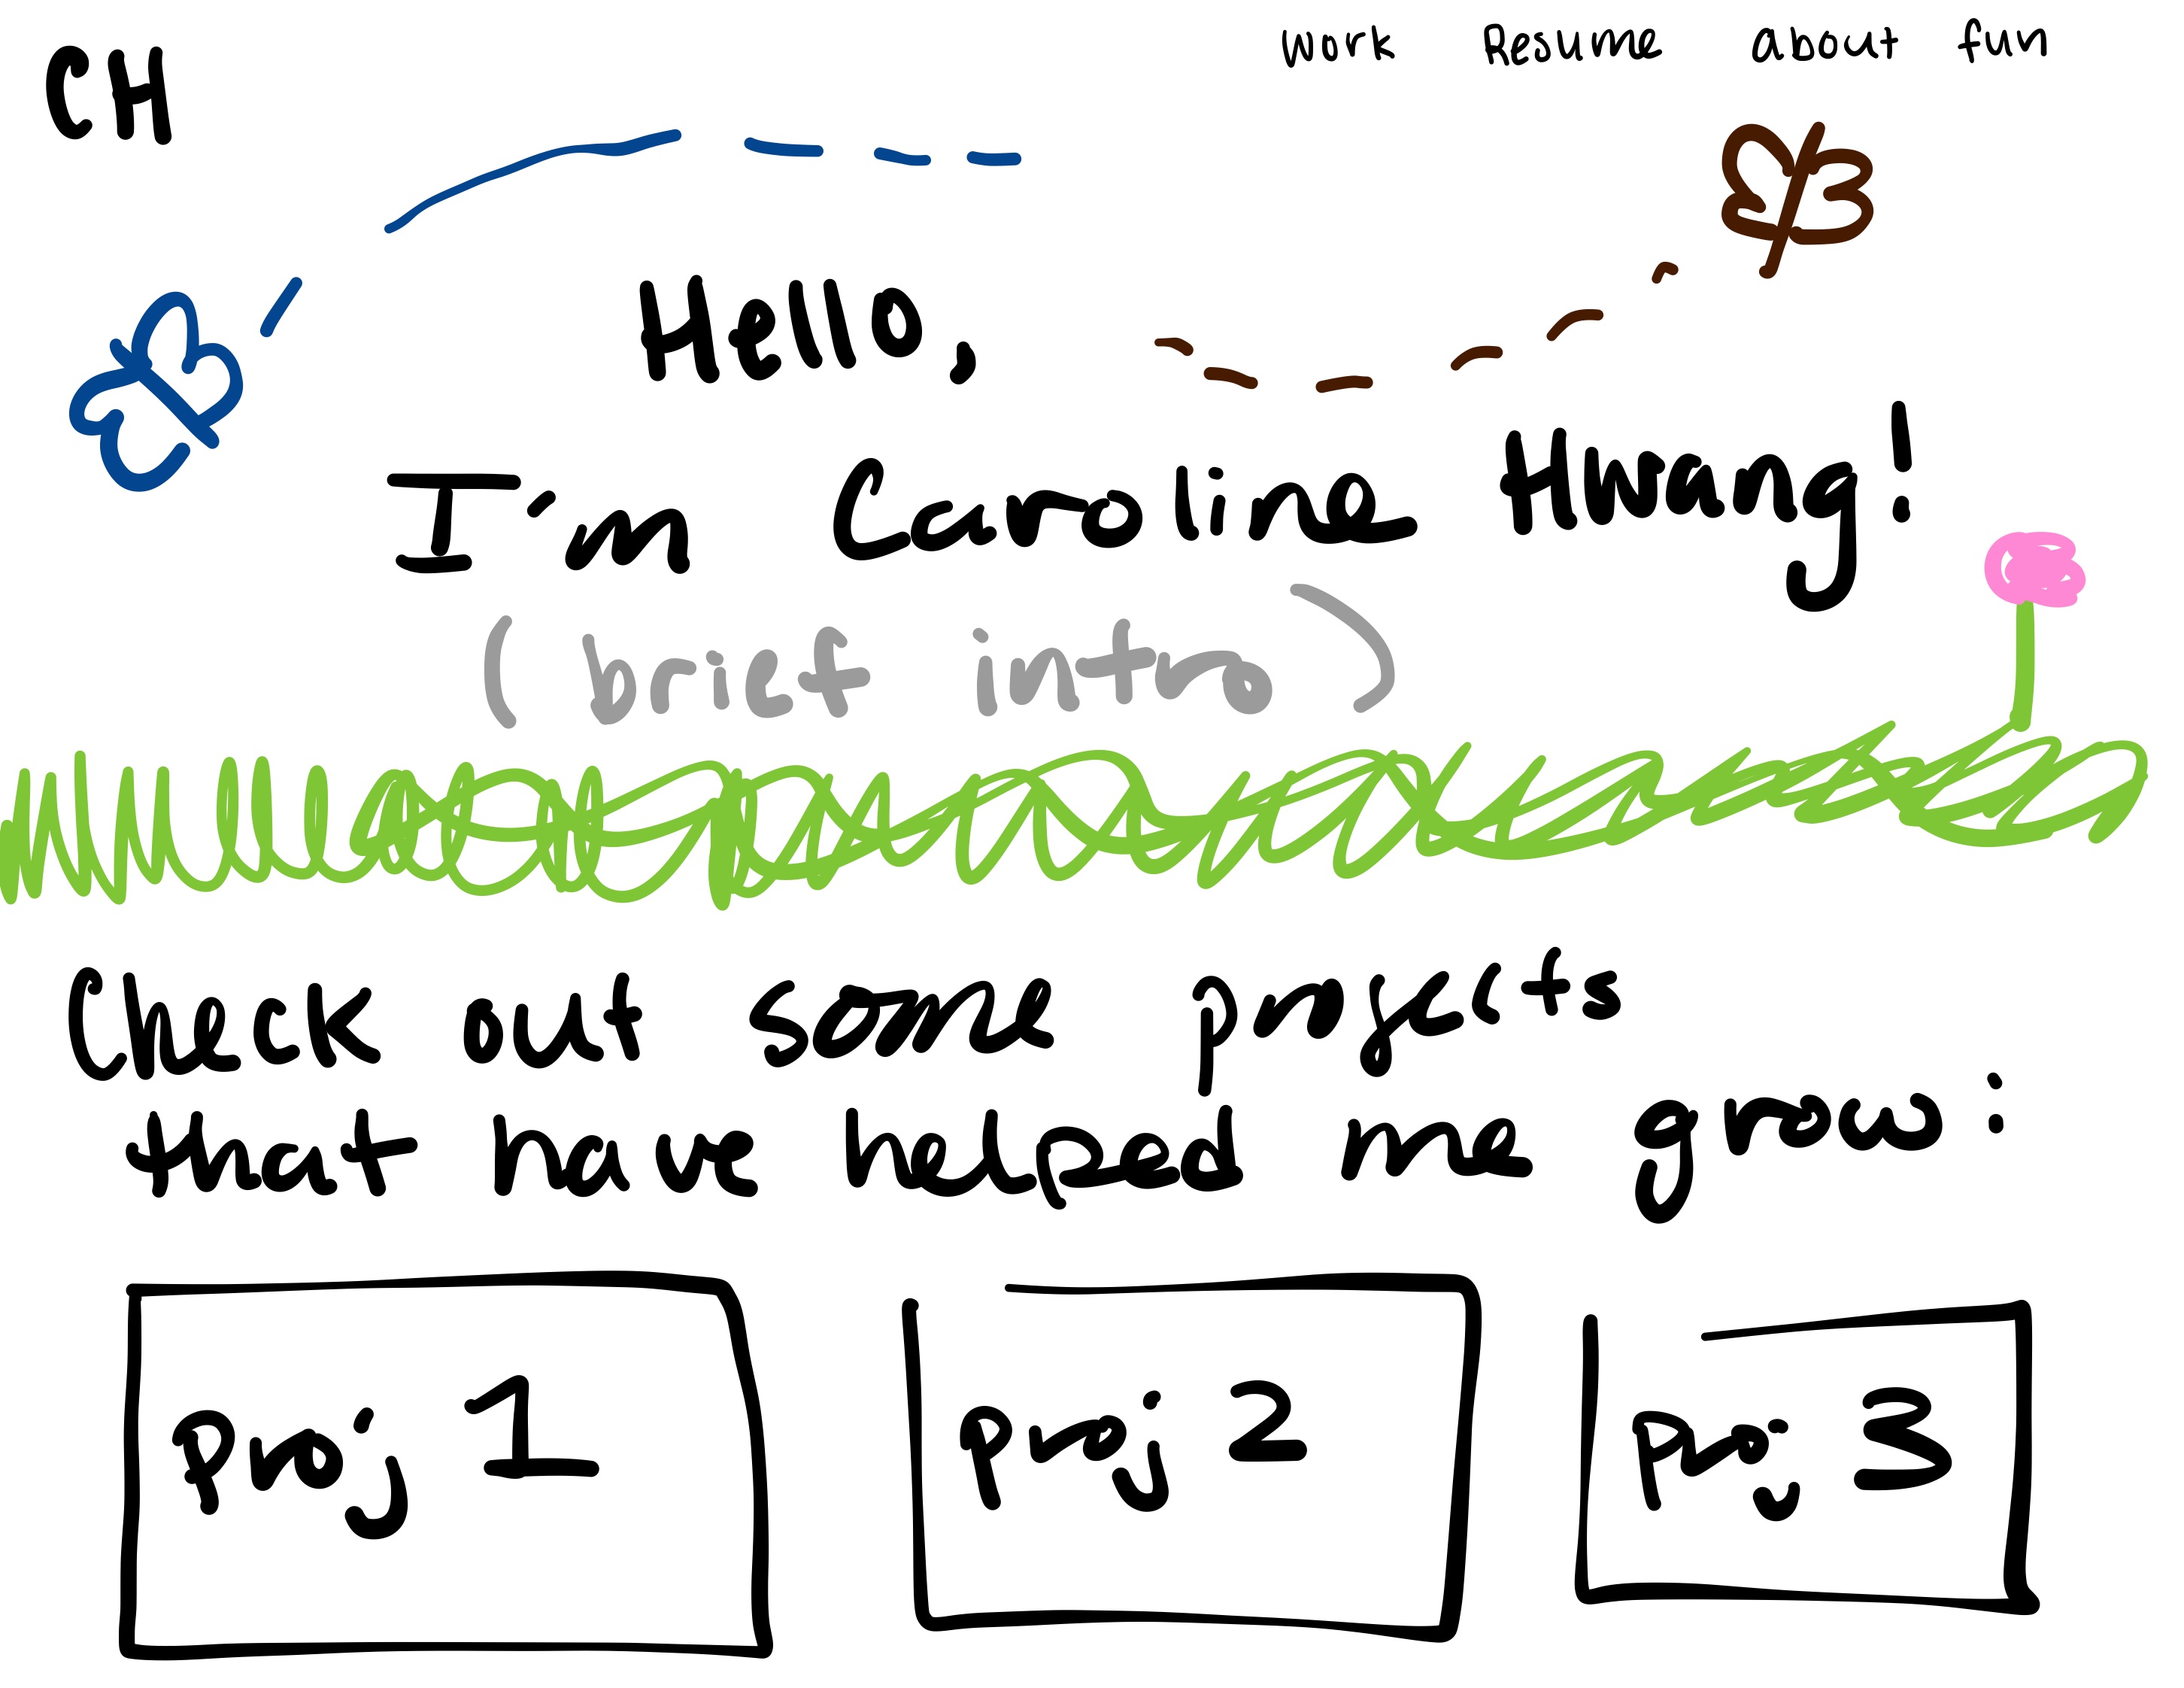 CH
Work Resume about fun
Hello,
I'm Caroline Huang!
(brief intro)
Check out some projects
that have helped me grow:
Proj 1
Proj 2
Proj 3